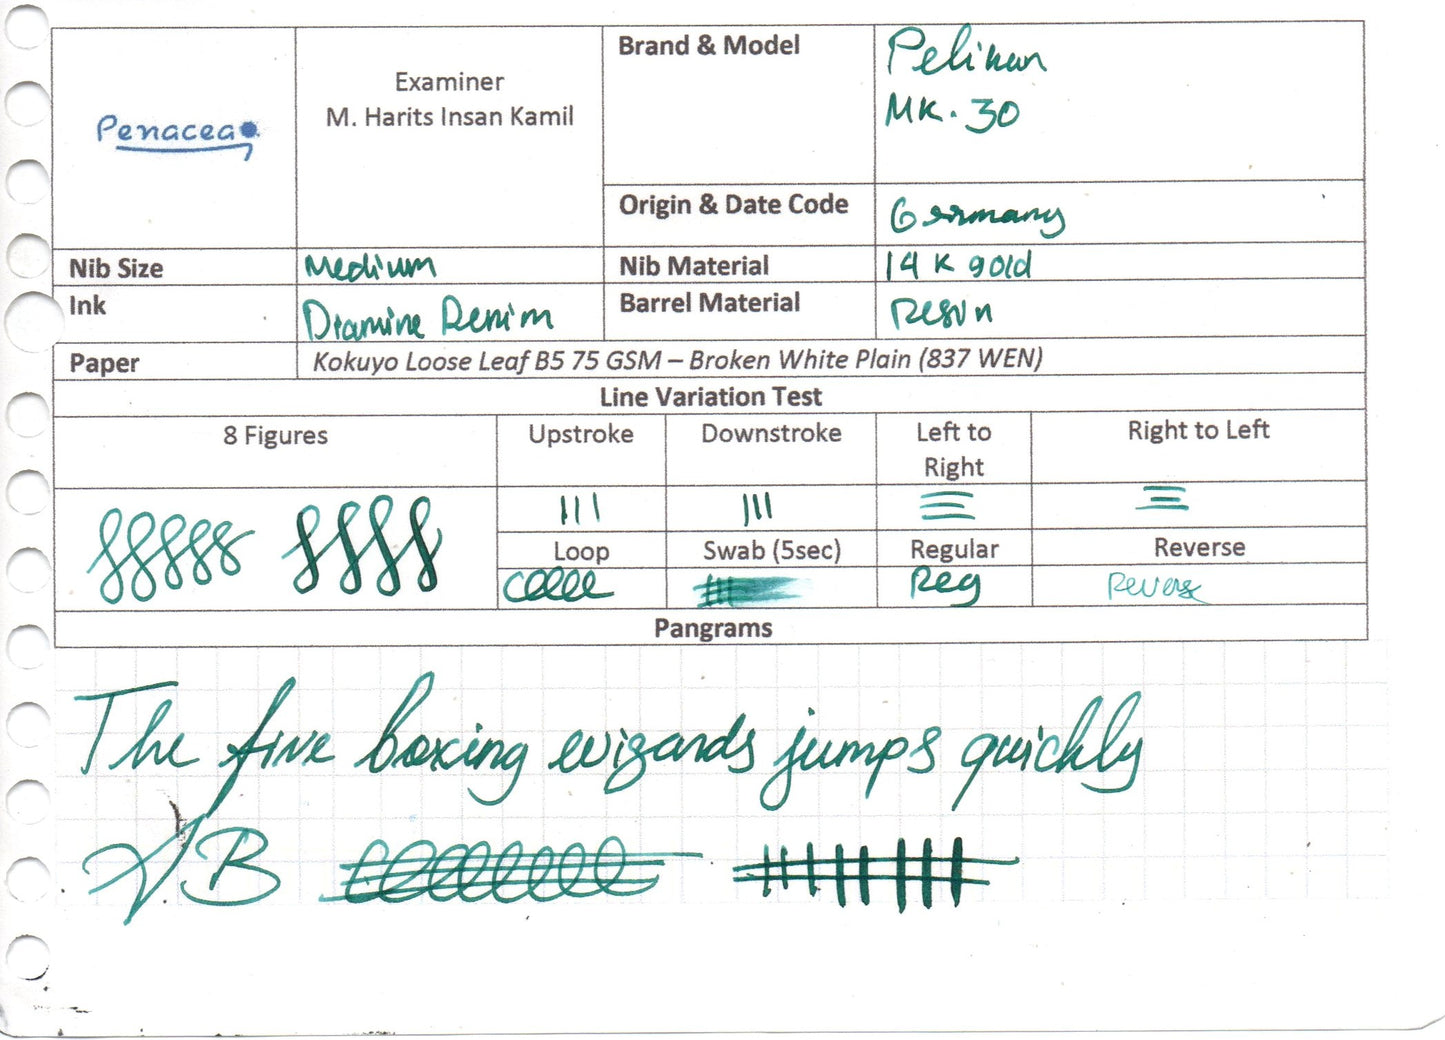 Penacea
Examiner
M. Harits Insan Kamil
Brand & Model
Pelikan
MK. 30
Origin & Date Code
Germany
Nib Size
Medium
Nib Material
14 K gold
Ink
Diamine Denim
Barrel Material
Resin
Paper
Kokuyo Loose Leaf B5 75 GSM – Broken White Plain (837 WEN)
Line Variation Test
8 Figures
Upstroke
Downstroke
Left to
Right
Right to Left
Loop
Swab (5sec)
Regular
Reverse
Reg
Reverse
Pangrams
The five boxing wizards jumps quickly
B